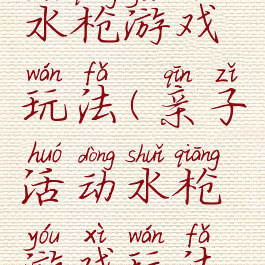 水枪游戏
wán fǎ qīn zǐ
玩法(亲子
huó dòng shuǐ qiāng
活动水枪
yóu xì wán fǎ
游戏玩法